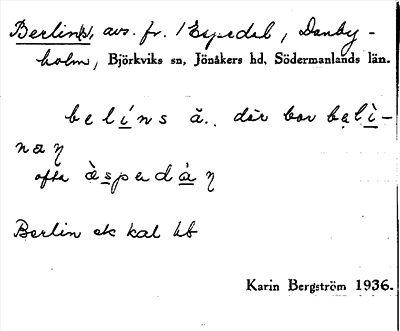 Berlin(s), avs. fr. / Espedal, Danby-
holm, Björkviks sn, Jönåkers hd, Södermanlands län.
belíns ä.. där bor belì-
naɳ
ofta àspedàɳ
Berlin ek kal bb
Karin Bergström 1936.